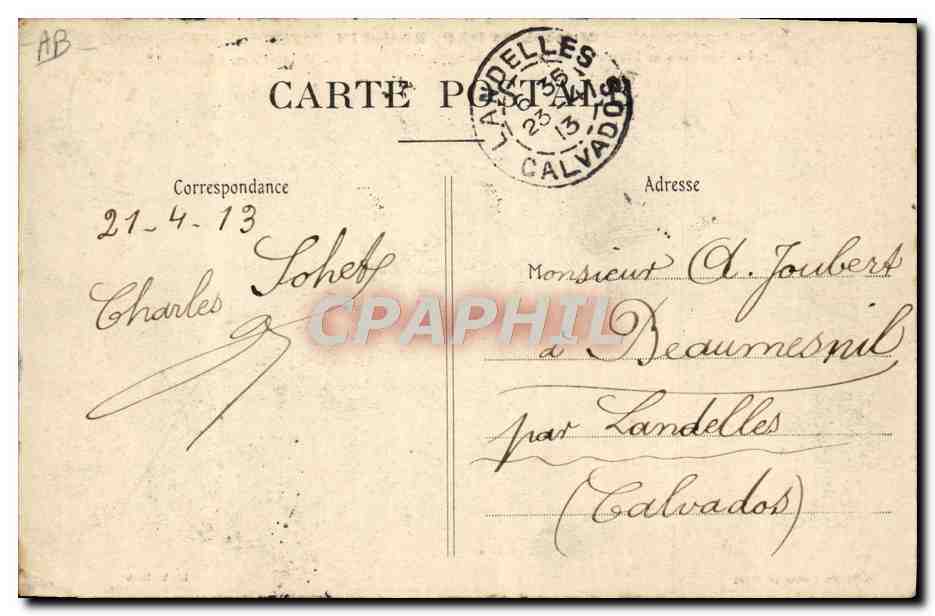 AB
CARTE POSTALE
LANDELLES
6 35
23 - 4
13
CALVADOS
Correspondance
Adresse
21-4-13
Charles Sohet
Monsieur A. Joubert
à Beaumesnil
par Landelles
(Calvados)
CPAPHIL